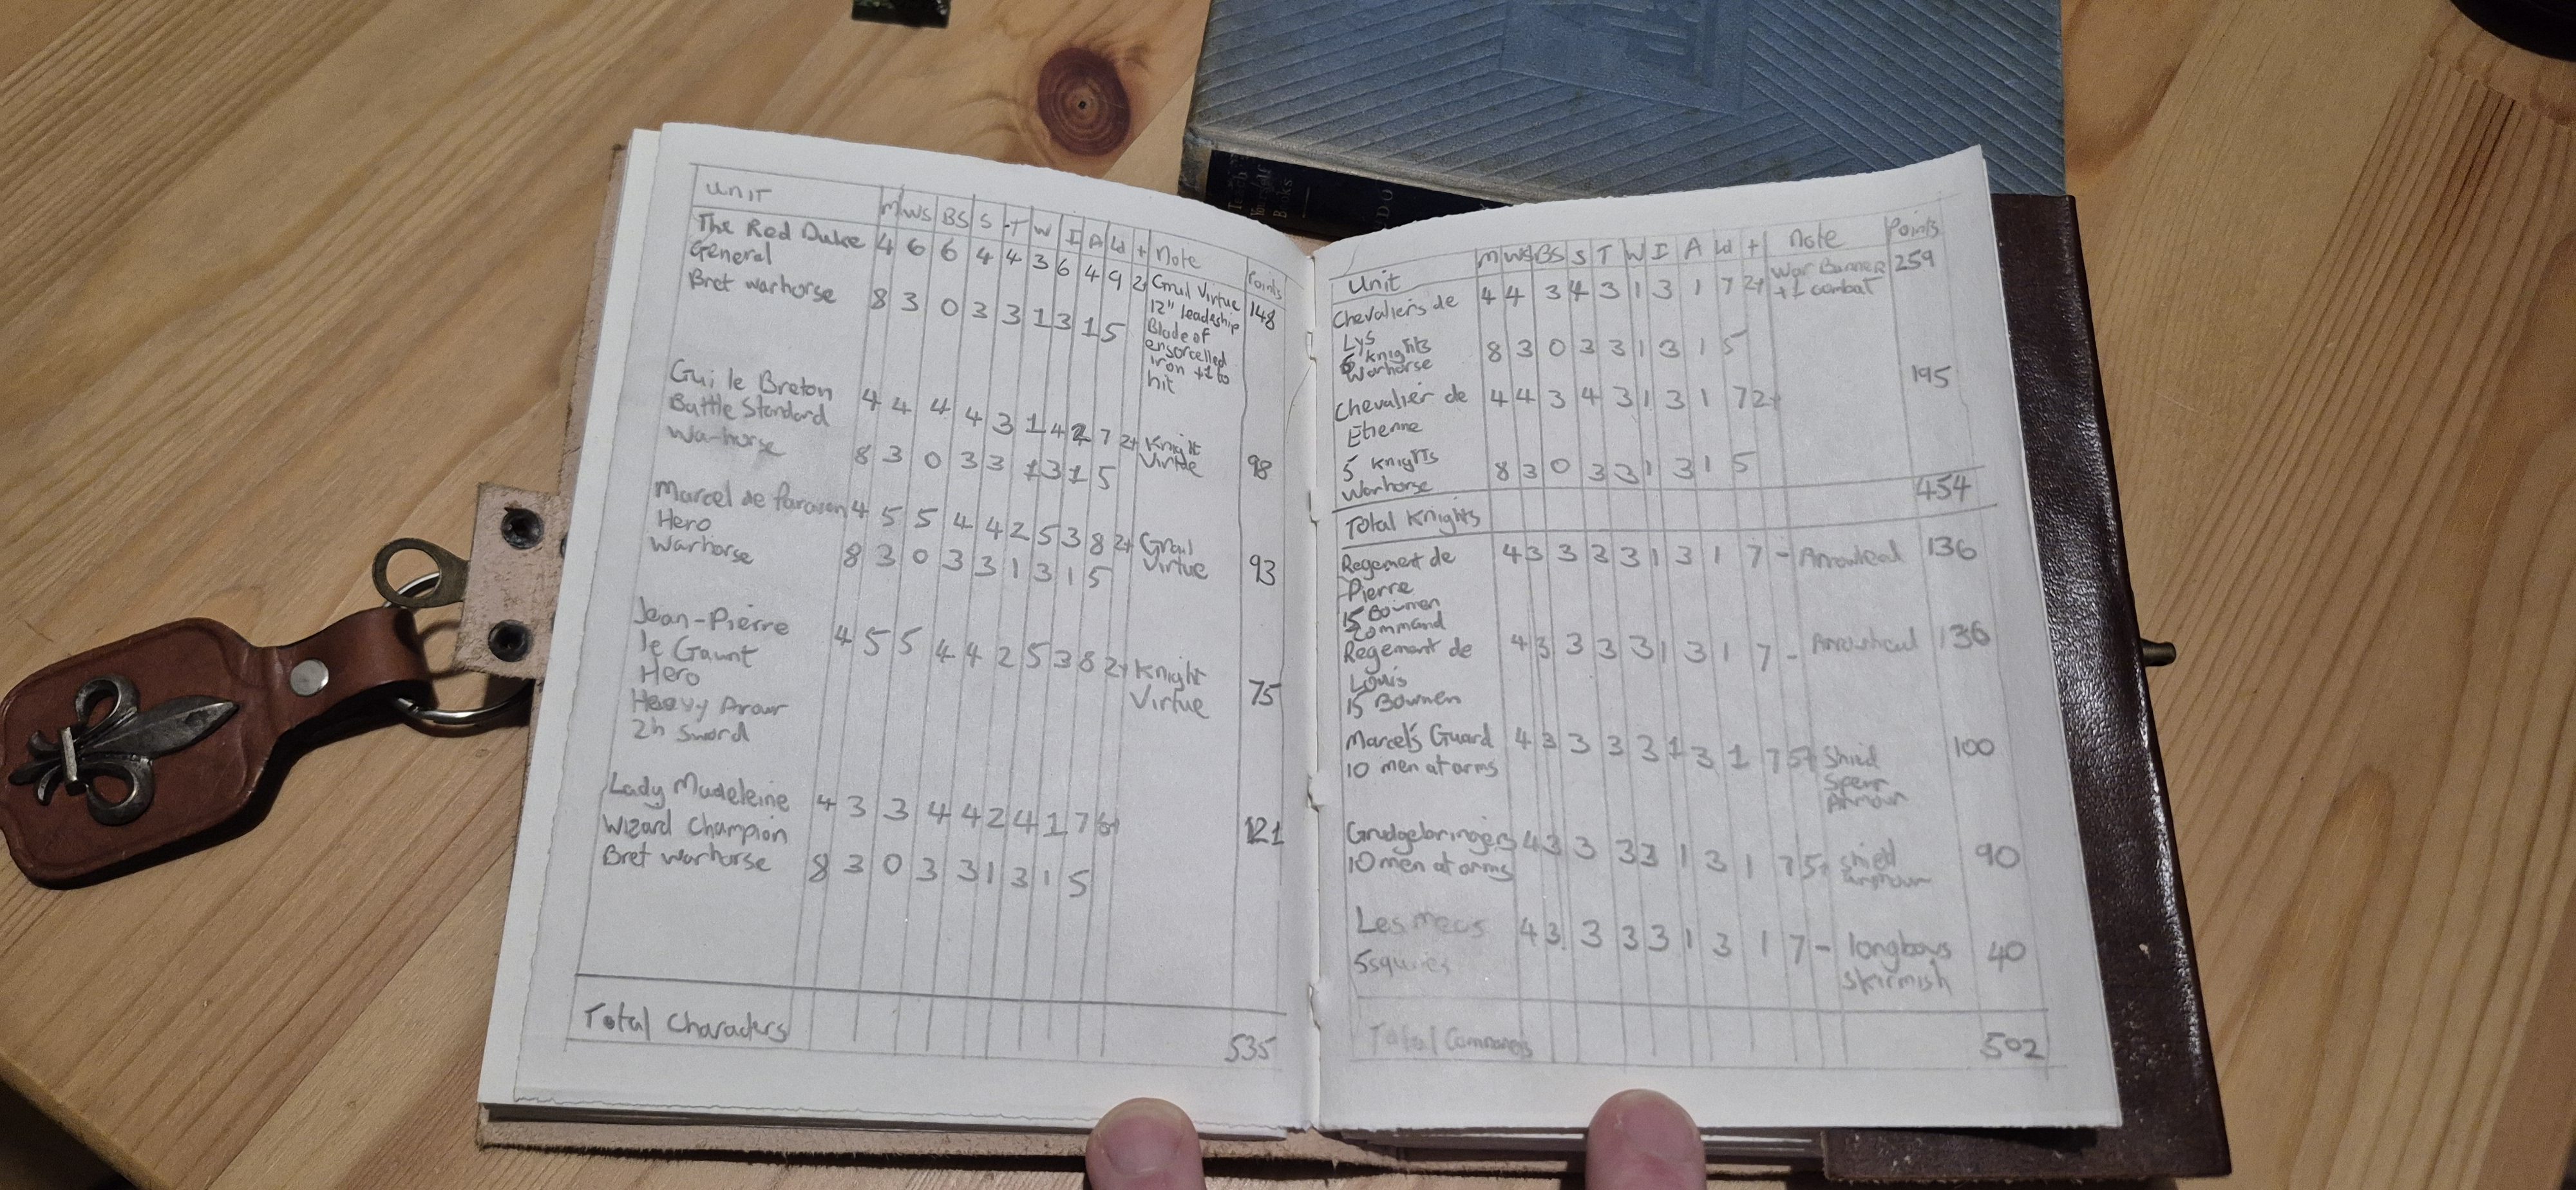 Teach Yourself Books
Unit M WS BS S T W I A Ld + Note Points
The Red Duke 4 6 6 4 4 3 6 4 9 2+ Grail Virtue 148
General 12" leadeship
Bret warhorse 8 3 0 3 3 1 3 1 5 Blade of
ensorcelled
iron +1 to
hit
Gui le Breton 4 4 4 4 3 1 4 2 7 2+ Knight 98
Battle Standard Virtue
Warhorse 8 3 0 3 3 1 3 1 5
Marcel de Paravon 4 5 5 4 4 2 5 3 8 2+ Grail 93
Hero Virtue
Warhorse 8 3 0 3 3 1 3 1 5
Jean-Pierre 4 5 5 4 4 2 5 3 8 2+ Knight 75
le Gaunt Virtue
Hero
Heavy Arour
2h Sword
Lady Madeleine 4 3 3 4 4 2 4 1 7 6+ 121
Wizard Champion
Bret warhorse 8 3 0 3 3 1 3 1 5
Total Characters 535
Unit M WS BS S T W I A Ld + Note Points
Chevaliers de 4 4 3 4 3 1 3 1 7 2+ War Banner 259
Lys +1 combat
6 Knights 8 3 0 3 3 1 3 1 5
Warhorse
Chevalier de 4 4 3 4 3 1 3 1 7 2+ 195
Etienne
5 Knights 8 3 0 3 3 1 3 1 5
Warhorse
Total Knights 454
Regement de 4 3 3 3 3 1 3 1 7 - Arrowhead 136
Pierre
15 Bowmen
Command
Regement de 4 3 3 3 3 1 3 1 7 - Arrowhead 136
Louis
15 Bowmen
Marcel's Guard 4 3 3 3 3 1 3 1 7 5+ Shield 100
10 men at arms Spear
Armour
Grudgebringers 4 3 3 3 3 1 3 1 7 5+ Shield 90
10 men at arms Armour
Les mecs 4 3 3 3 3 1 3 1 7 - longbows 40
5 squires Skirmish
Total Commoners 502